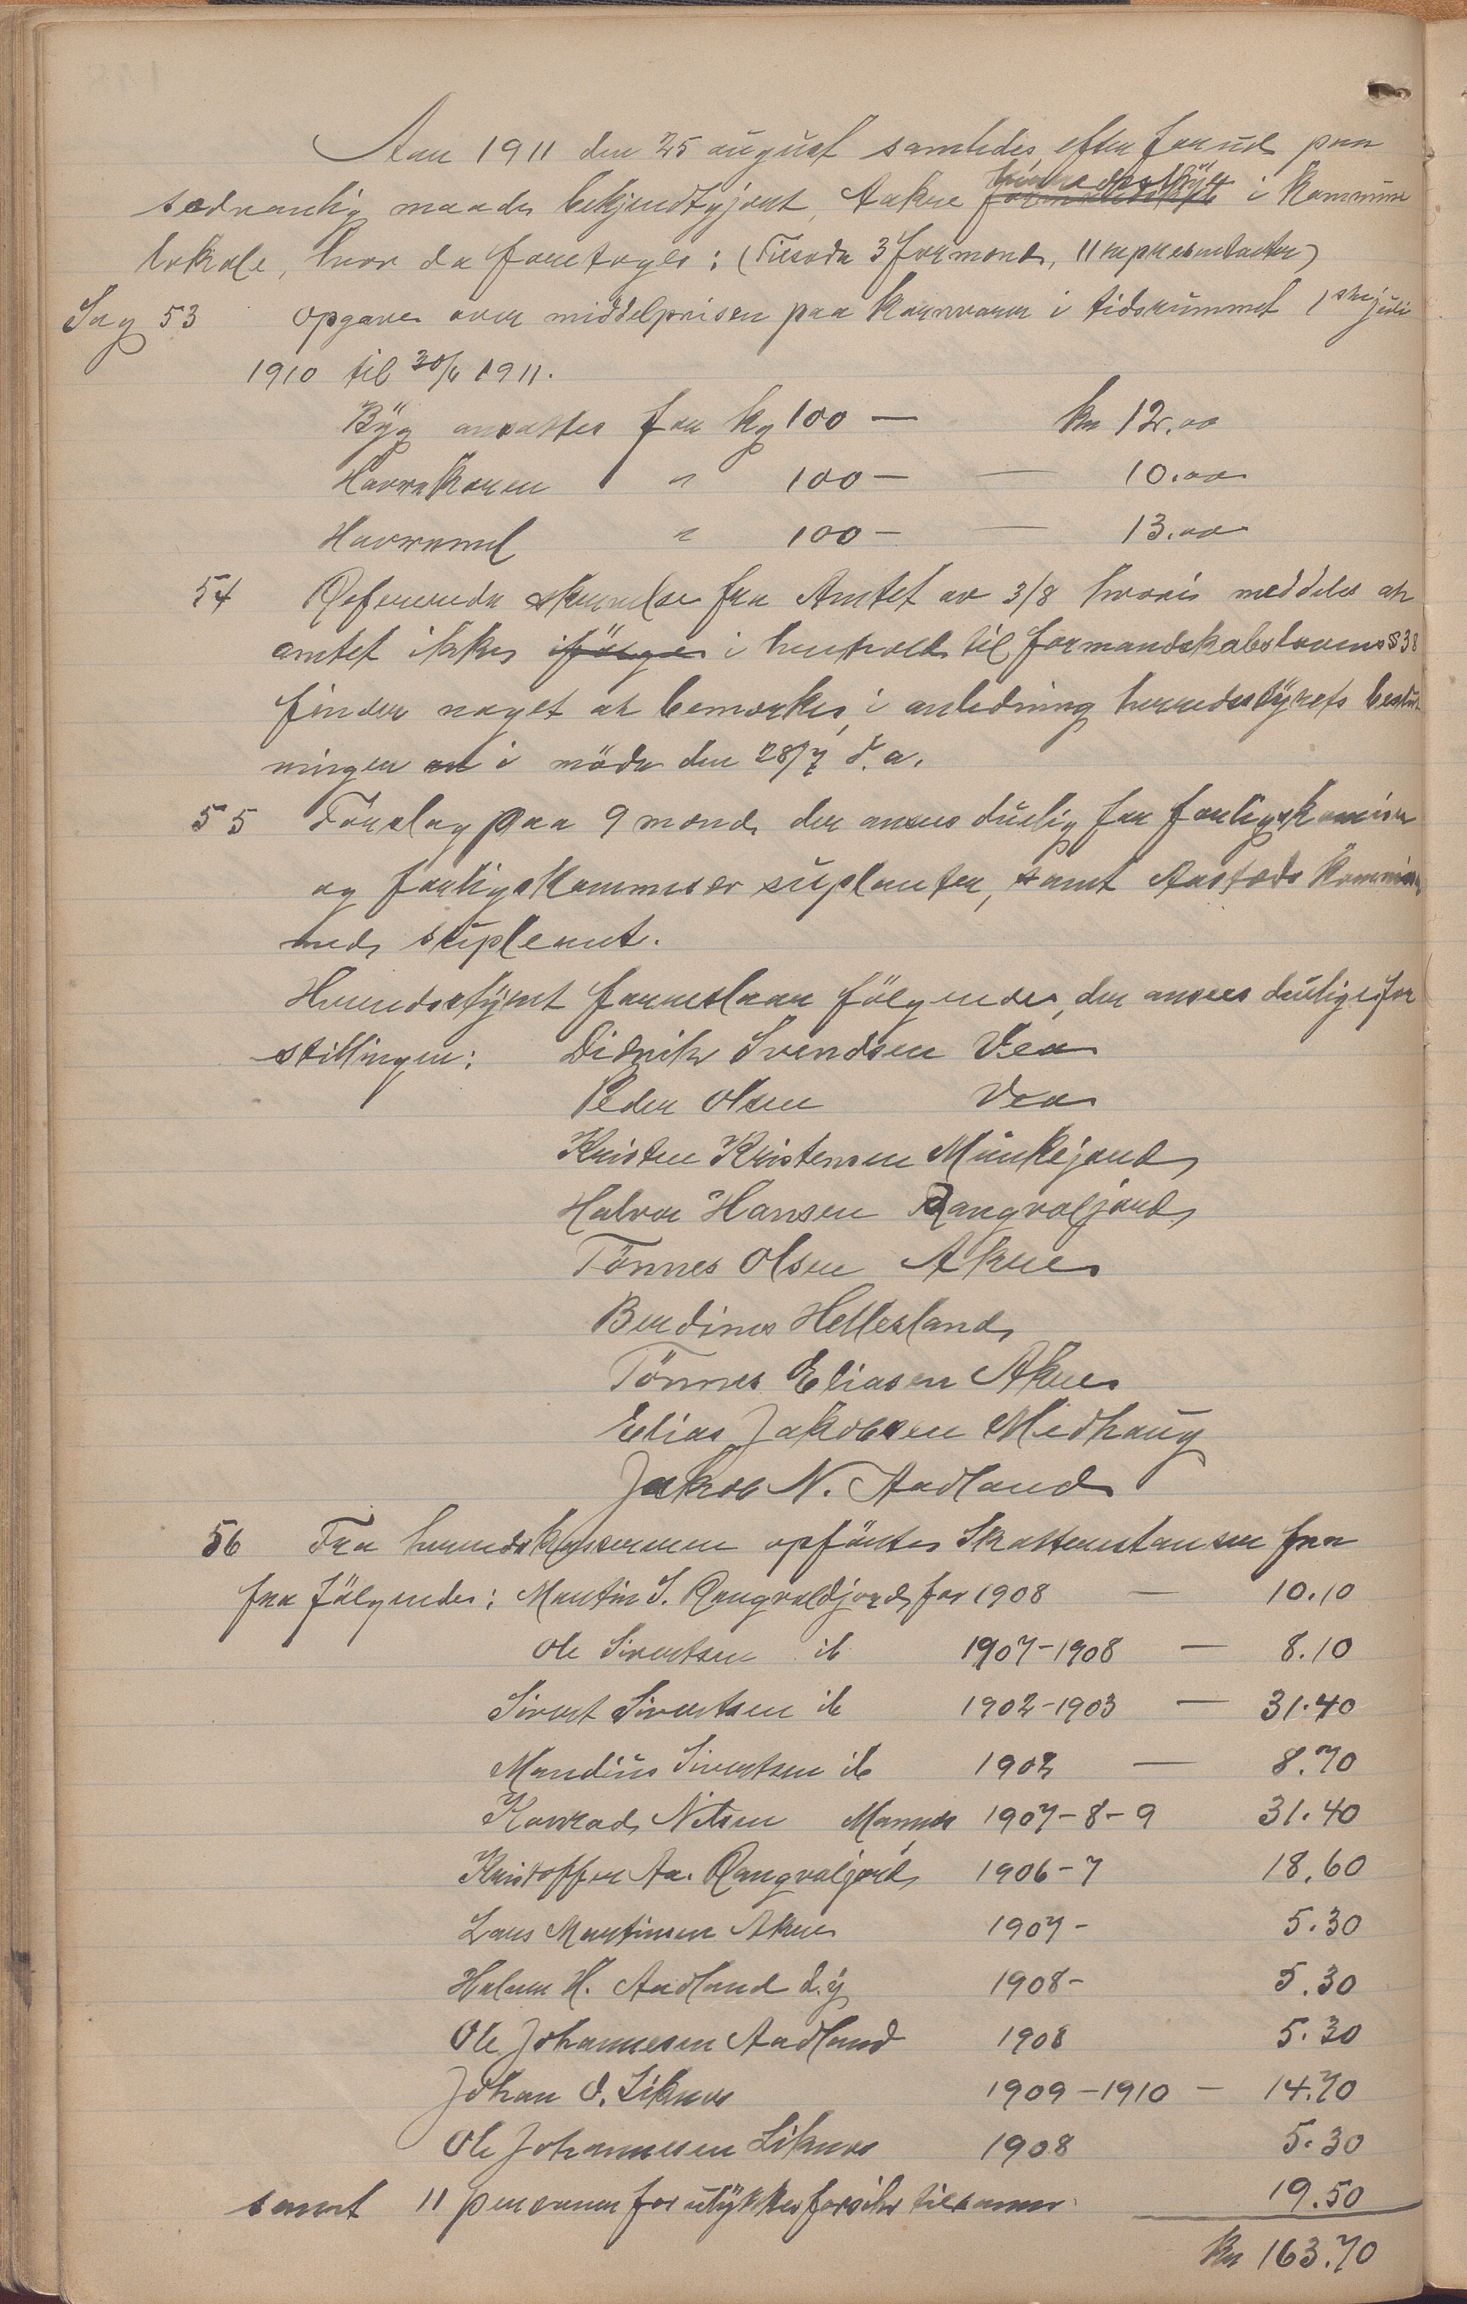 Aar 1911 den 25 august samledes efter forud paa
sedvanlig maade bekjendtgjort, Aakre formandskab herredsstyre i Kommune
lokale, hvor da foretoges: (Tilsede 3 formænd, 11 represententer)
Sag 53 Opgave over middelprisen paa kornvarer i tidsrummet 1ste juli
1910 til 30/6 1911.
Byg ansattes for kg 100 — kr 12.00
Havrekoren " 100 — — 10.00
Havremel " 100 — — 13.00
54 Refererede skrivelse fra Amtet av 3/8 hvori meddeles at
amtet ikke ifølge i henhold til formandskabslovens §38
finder noget at bemerke, i anledning herredsstyrets beslut
ninger i møde den 28/7 d.a.
55 Forslag paa 9 mænd der ansees duelig for forligskomisær
og forligskommisær suplenter, samt Aastæds kommisær
med supleant.
Herredsstyret foreslaar følgende, der ansees duelige for
stillingen: Didrik Svendsen Vea
Peder Olsen Vea
Kristen Kristensen Munkejord
Halvor Hansen Rangvaljord
Tønnes Olsen Akre
Berdines Hellesland
Tønnes Eliasen Akre
Elias Jakobsen Medhaug
Jakob N. Aadland
56 Fra herredskassereren opførtes Skatterestanser fra
fra følgende: Martin S. Rangvaldjord for 1908 — 10.10
Ole Sivertsen ib 1907-1908 — 8.10
Sivert Sivertsen ib 1902-1903 — 31.40
Mandius Sivertsen ib 1902 — 8.70
Konrad Nilsen Mannes 1907-8-9 31.40
Kristoffer Aa. Rangvaljord 1906-7 18.60
Lars Martinsen Akre 1907- 5.30
Halvor H. Aadland d.y 1908- 5.30
Ole Johannesen Aadland 1908 5.30
Johan O. Liknes 1909-1910 — 14.70
Ole Johannesen Liknes 1908 5.30
samt 11 personer for ulykkesforsikr tilsamen 19.50
Kr 163.70